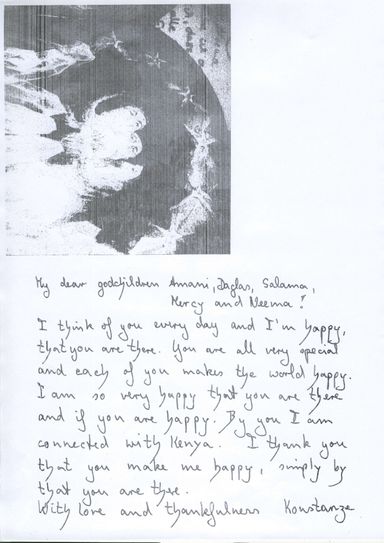 My dear godchildren Amani, Daglas, Salama,
Mercy and Neema!
I think of you every day and I'm happy,
that you are there. You are all very special
and each of you makes the world happy.
I am so very happy that you are there
and if you are happy. By you I am
connected with Kenya. I thank you
that you make me happy, simply by
that you are there.
With love and thankfulness Konstanze